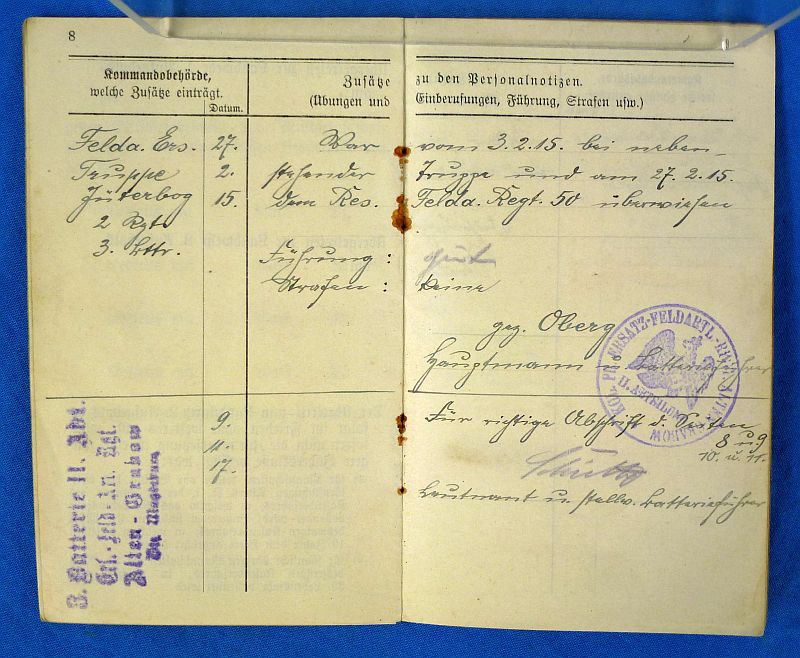 8
Kommandobehörde,
welche Zusätze einträgt.
Datum.
Zusätze zu den Personalnotizen.
(Übungen und Einberufungen, Führung, Strafen usw.)
Felda. Ers. 27. War vom 3.2.15. bei neben-
Truppe 2. stehender Truppe und am 27.2.15.
Jüterbog 15. dem Res. Felda. Regt. 50 überwiesen
2 Rgt.
3. Bttr. Führung: gut
Strafen: keine
gez. Oberg
Hauptmann u. Batterieführer
KGL. PR. ERSATZ-FELDARTL.-REGT. ALTEN-GRABOW
II. ABTEILUNG
3. Batterie II. Abt.
Ers.-Feld-Art. Rgt.
Alten-Grabow
Bz. Magdeburg
9.
11.
17.
Für richtige Abschrift d. Seiten
8 u. 9
10. u. 11.
Leutnant u. stellv. Batterieführer